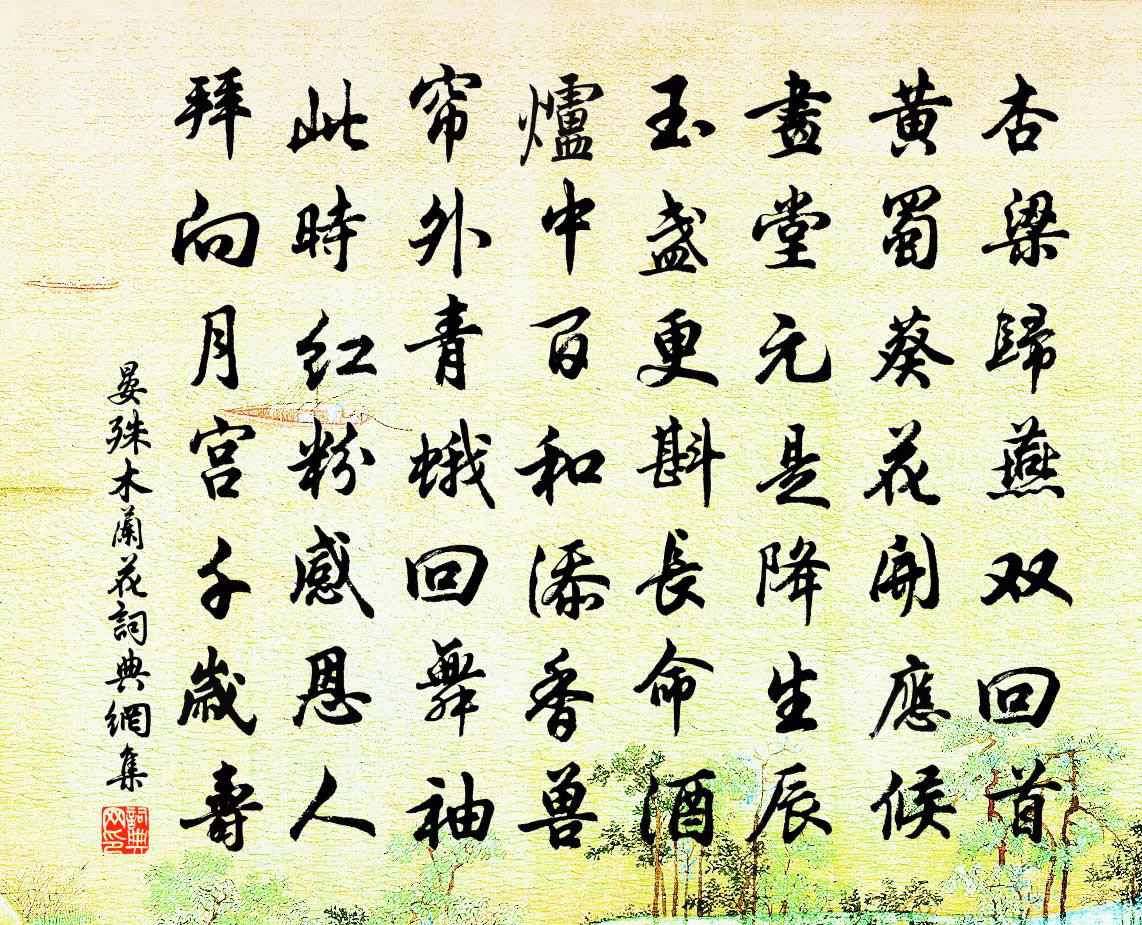 杏梁歸燕双回首
黃蜀葵花開應候
畫堂元是降生辰
玉盏更斟長命酒
爐中百和添香兽
帘外青蛾回舞袖
此時红粉感恩人
拜向月宫千歲壽
晏殊木蘭花詞典網集
詞典网印